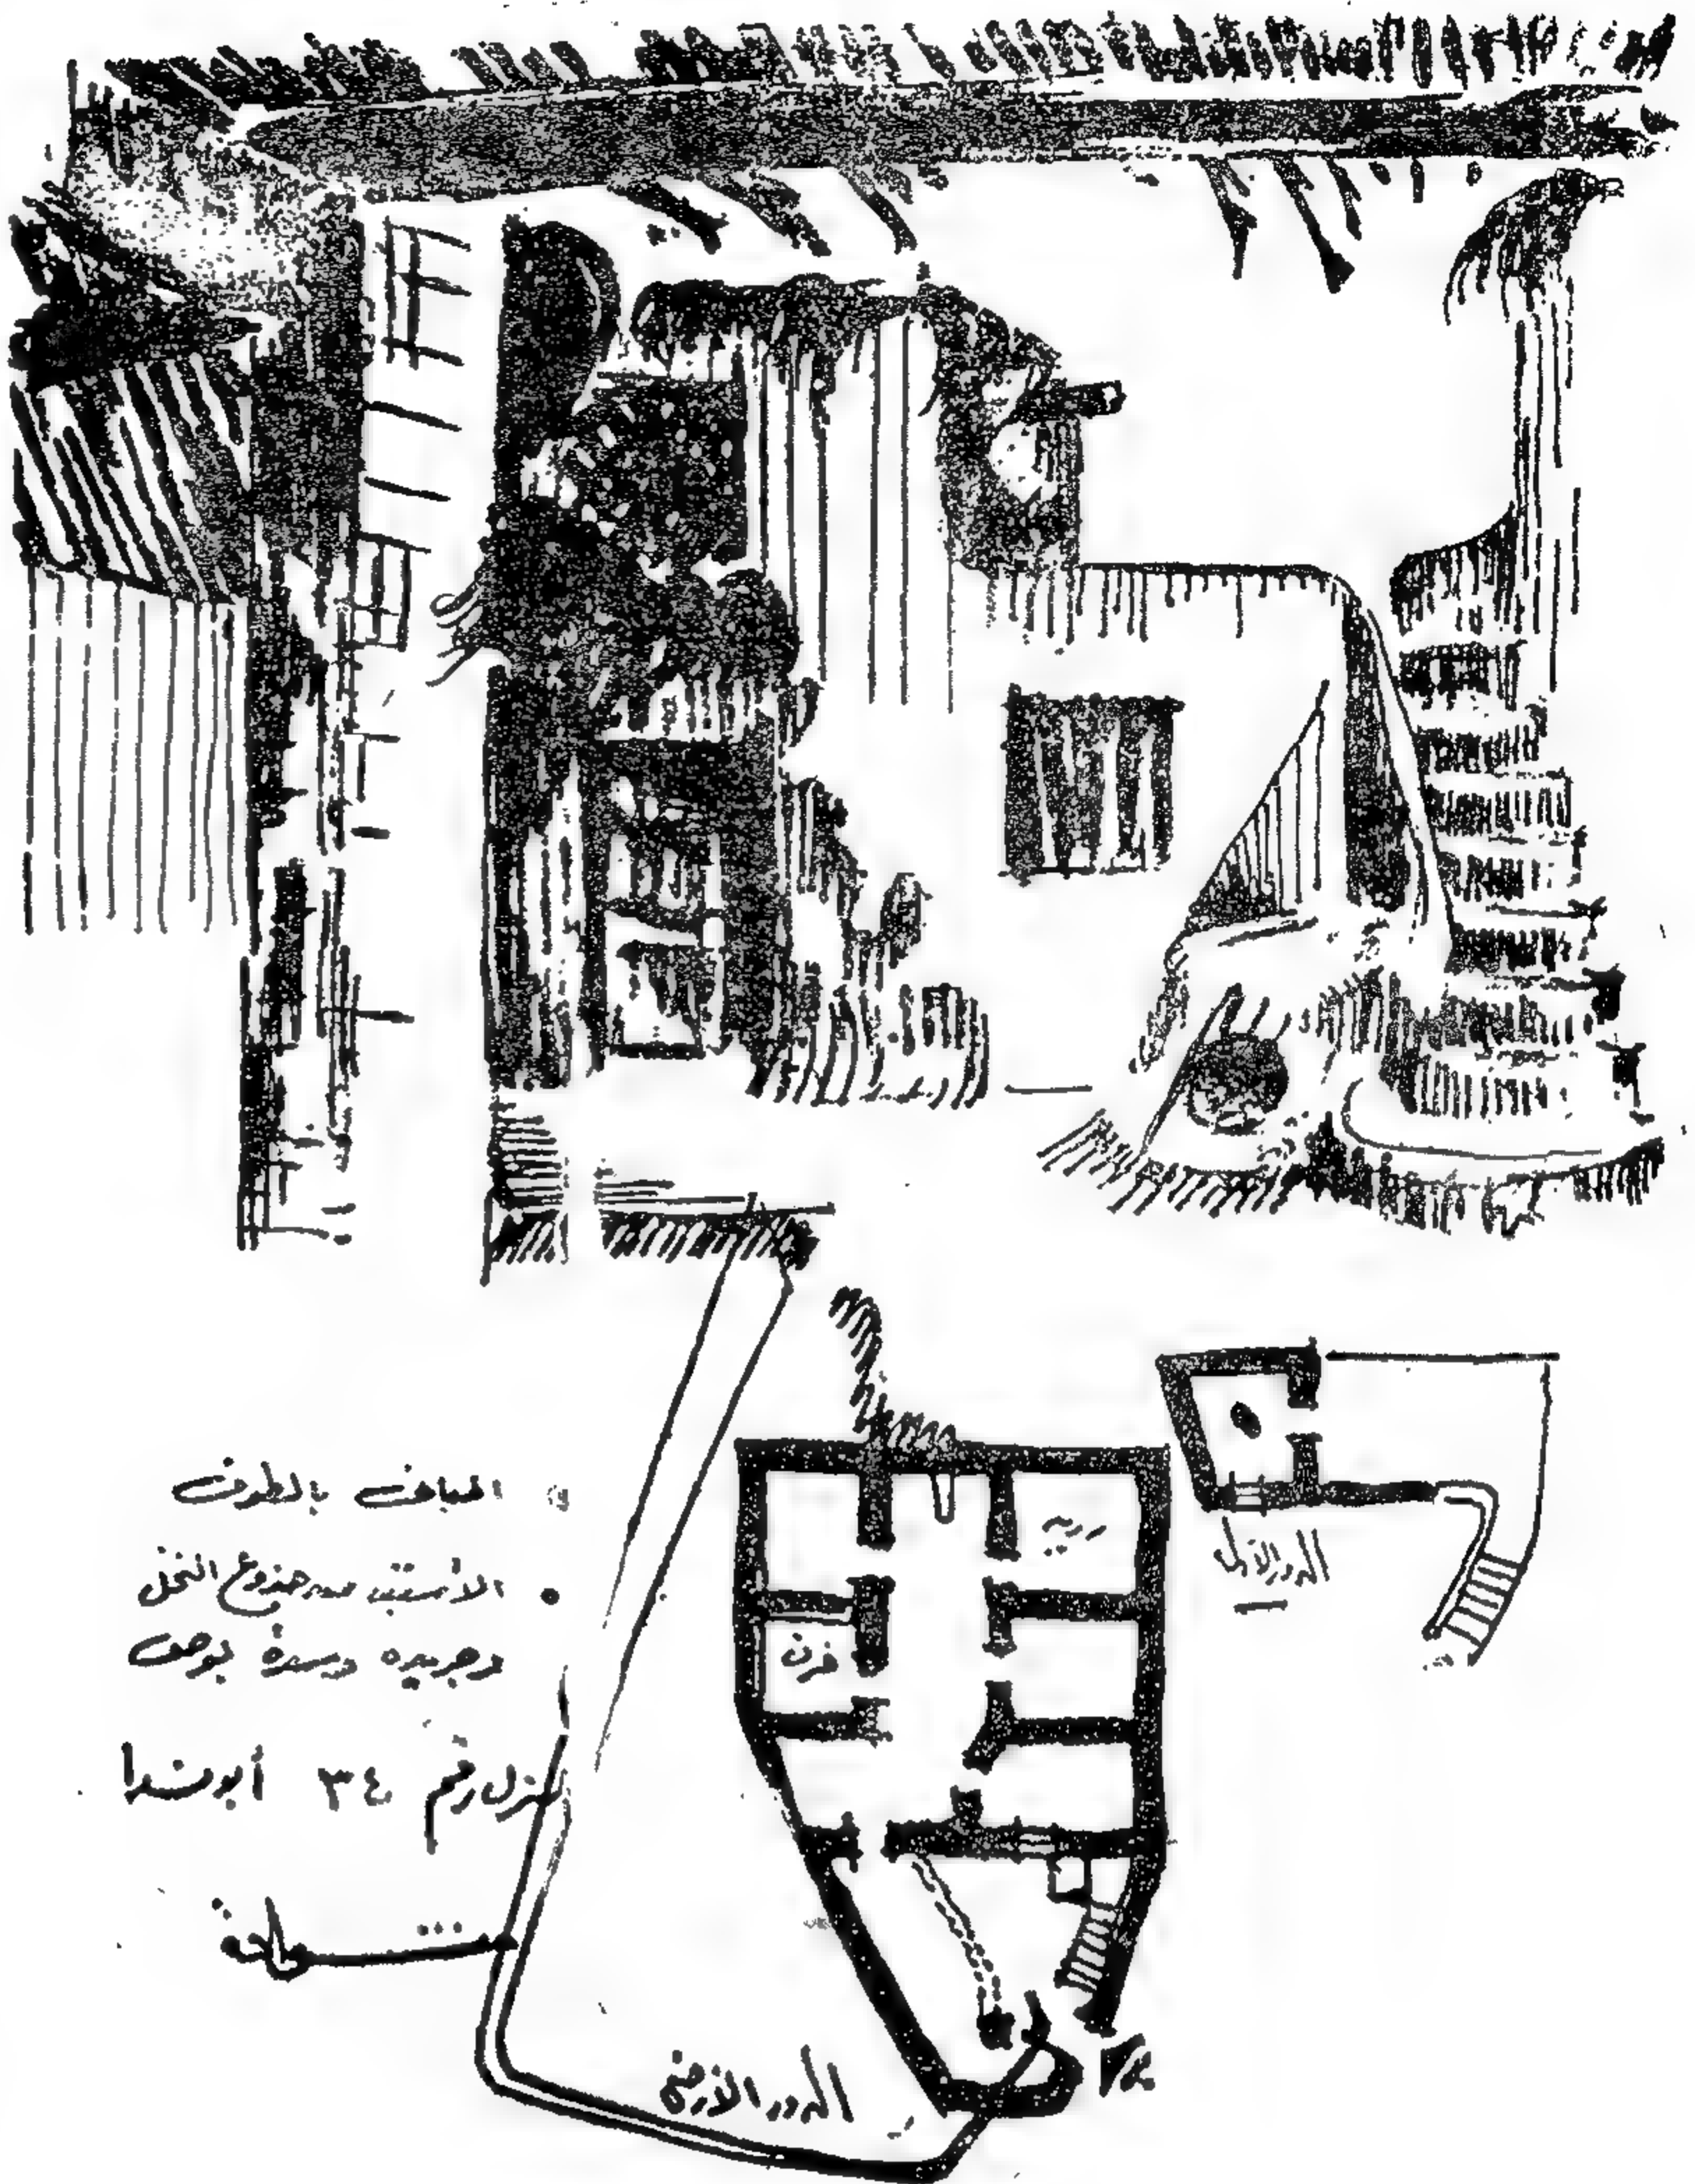 المباني بالطوف
الأسقف من جذوع النخل
وجريده وسدة بوص
منزل رقم ٣٤ أبو شدا
زريبه
فرن
الدور الأول
الدور الأرضي